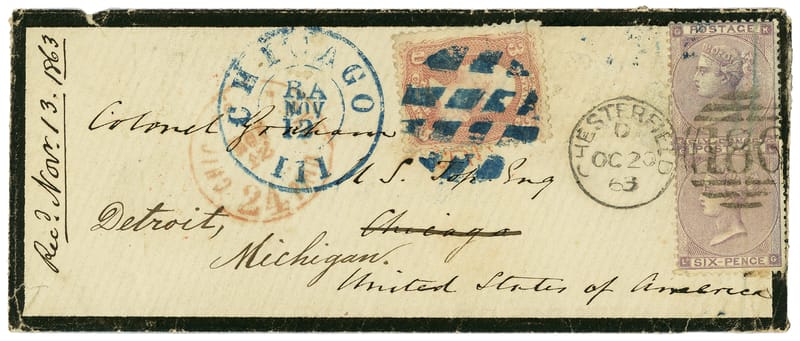 Rec.d Nov. 13. 1863
CHICAGO
RA
NOV
12
Ill
24
CHIC
3
U
CHESTERFIELD
D
OC 29
63
G K
POSTAGE
186
L G
SIX-PENCE
Colonel Graham
U S. Top. Eng
Detroit,
Chicago
Michigan.
United States of America